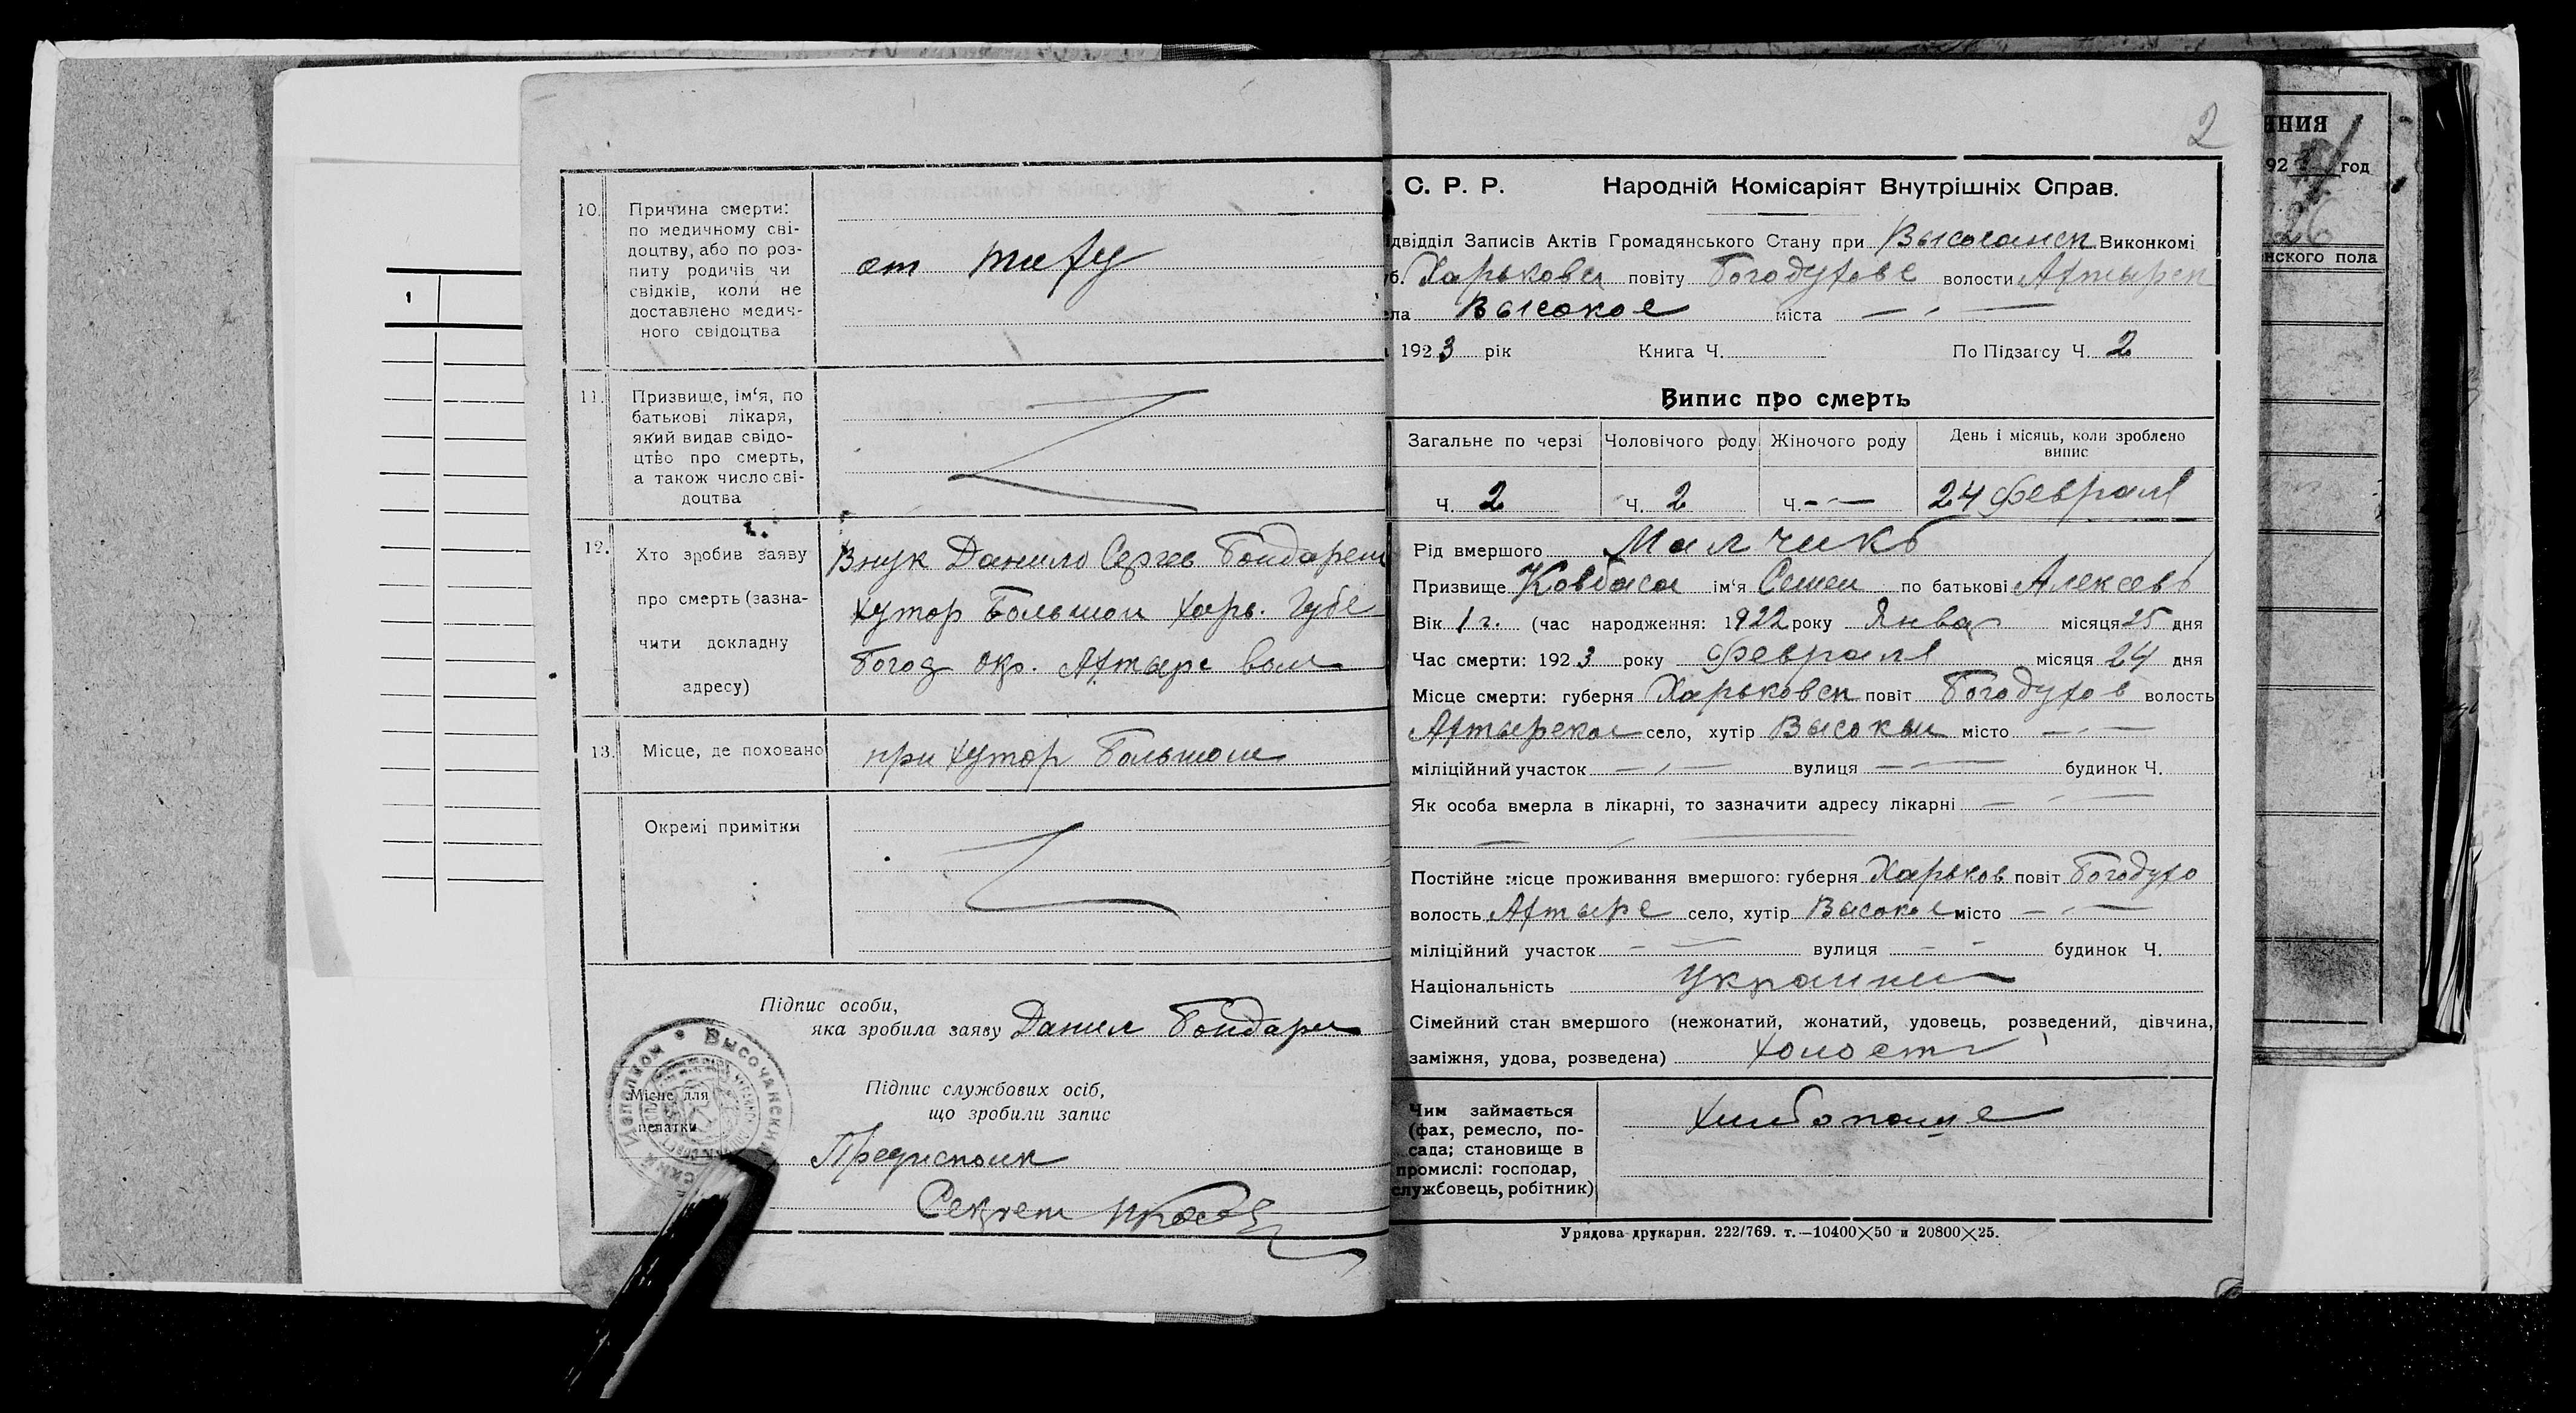 10.
Причина смерти:
по медичному сві-
доцтву, або по роз-
питу родичів чи
свідків, коли не
доставлено медич-
ного свідоцтва
от тифу
11.
Призвище, ім‘я, по
батькові лікаря,
який видав свідо-
цтво про смерть,
а також число сві-
доцтва
12.
Хто зробив заяву
про смерть (зазна-
чити докладну
адресу)
Внук Данило Сергев Бондарен
хутор Большои харь. губе
Богод окр. Ахтыре вол
13.
Місце, де поховано
при хутор Большом
Окремі примітки
Підпис особи,
яка зробила заяву Данил Бондарен
Підпис службових осіб,
що зробили запис
Місце для
печатки
Высочанский Исполком
Предисполк
Секрет
2
. С. Р. Р. Народній Комісаріят Внутрішніх Справ.
ідвідділ Записів Актів Громадянського Стану при Высочанск Виконкомі
уб. Харьковск повіту Богодухове волости Ахтырск
ела Высокое міста — —
192 3 рік Книга Ч. По Підзагсу Ч. 2
Випис про смерть
Загальне по черзі Чоловічого роду Жіночого роду День і місяць, коли зроблено випис
Ч. 2 Ч. 2 Ч. - — 24 февраля
Рід вмершого Малчикъ
Призвище Ковбаса ім‘я Семен по батькові Алексевъ
Вік 1 г. (час народження: 1922 року Январ місяця 25 дня
Час смерти: 192 3 року февраля місяця 24 дня
Місце смерти: губерня Харьковск повіт Богодухов волость
Ахтырскои село, хутір Высокыи місто — —
міліційний участок — — вулиця — — будинок Ч.
Як особа вмерла в лікарні, то зазначити адресу лікарні — —
Постійне місце проживання вмершого: губерня Харьков повіт Богодухо
волость Ахтыре село, хутір Високое місто — —
міліційний участок — — вулиця — - будинок Ч.
Національність Украини
Сімейний стан вмершого (нежонатий, жонатий, удовець, розведений, дівчина,
заміжня, удова, розведена) холост
Чим займається
(фах, ремесло, по-
сада; становище в
промислі: господар,
службовець, робітник)
хлибопаше
Урядова друкарня. 222/769. т.—10400×50 и 20800×25.
1
ния
192 год
26
нского пола